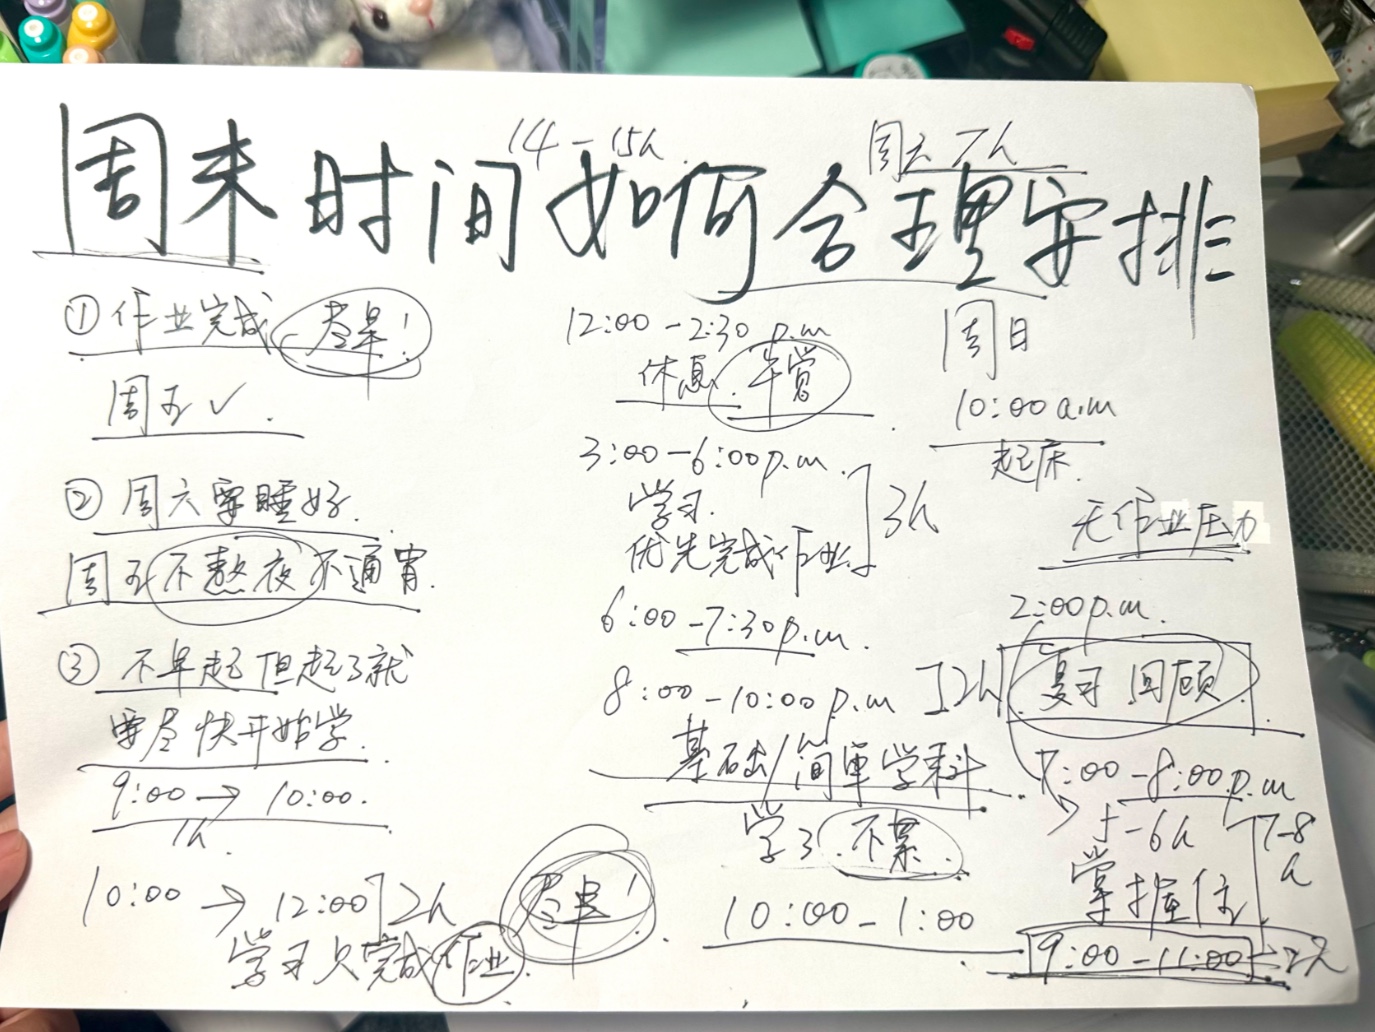 周末时间如何合理安排
14-15h
周六 7h
①作业完成 尽早!
周五✓.
②周六要睡好.
周五不熬夜不通宵.
③不早起但起了就
要尽快开始学.
9:00→10:00.
1h.
10:00→12:00]2h
学习只完成作业.
尽早!
12:00-2:30 p.m
休息.午觉
3:00-6:00p.m.
学习.
优先完成作业.
3h
6:00-7:30p.m.
8:00-10:00p.m
]2h
基础/简单学科
学习 不累.
10:00-1:00
周日
10:00a.m
起床
无作业压力
2:00p.m.
复习 回顾
7:00-8:00p.m
5-6h
7-8
h
掌握住
9:00-11:00